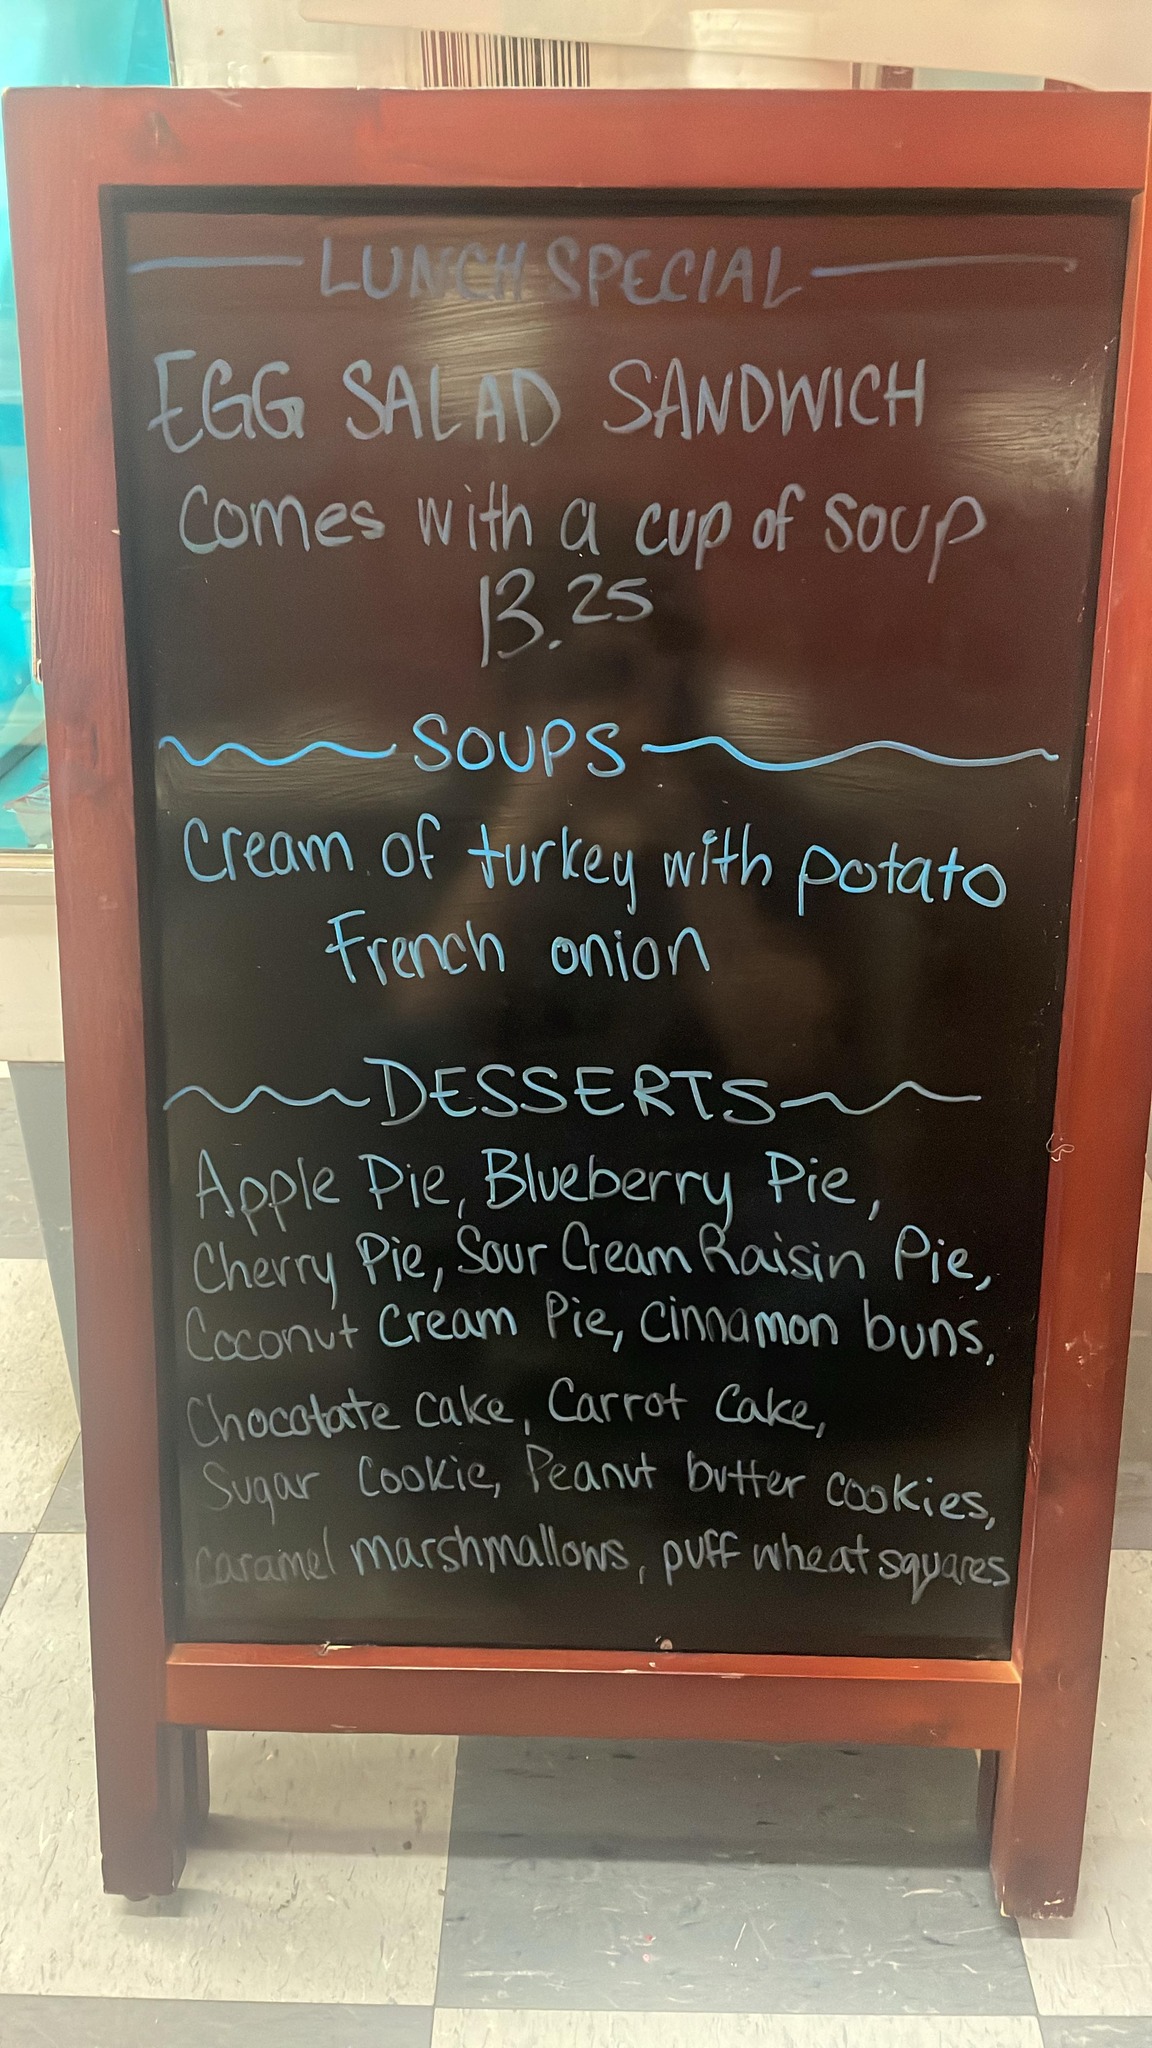 LUNCH SPECIAL
EGG SALAD SANDWICH
Comes with a cup of soup
13.25
SOUPS
Cream of turkey with potato
French onion
DESSERTS
Apple Pie, Blueberry Pie,
Cherry Pie, Sour Cream Raisin Pie,
Coconut Cream Pie, Cinnamon buns,
Chocolate cake, Carrot Cake,
Sugar Cookie, Peanut butter cookies,
caramel marshmallows, puff wheat squares